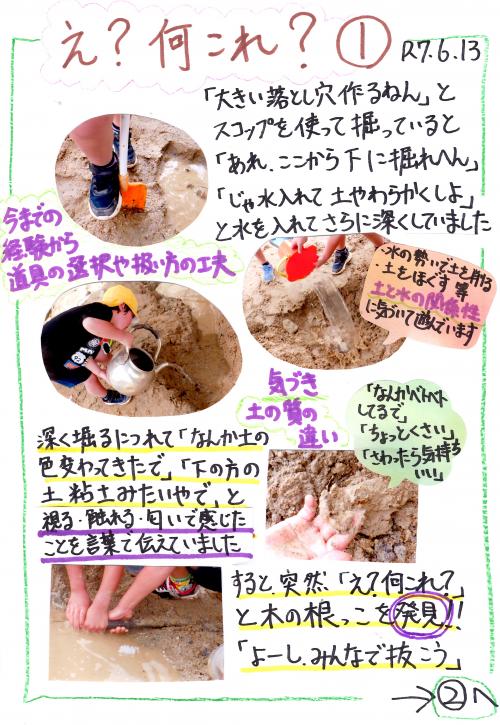 え？何これ？①
R7.6.13
「大きい落とし穴作るねん」と
スコップを使って掘っていると
「あれ、ここから下に掘れへん」
「じゃ水入れて土やわらかくしよ」
と水を入れてさらに深くしていました
今までの
経験から
道具の選択や扱い方の工夫
・水の勢いで土を削る
・土をほぐす 等
土と水の関係性
に気づいて遊んでいます
気づき
土の質の
違い
「なんかベトベト
してるで」
「ちょっとくさい」
「さわったら気持ち
いい」
深く掘るにつれて「なんか土の
色変わってきたで」「下の方の
土粘土みたいやで」と
視る・触れる・匂いで感じた
ことを言葉で伝えていました
すると、突然、「え？何これ？」
と木の根っこを発見!!
「よーし、みんなで抜こう」
→②へ